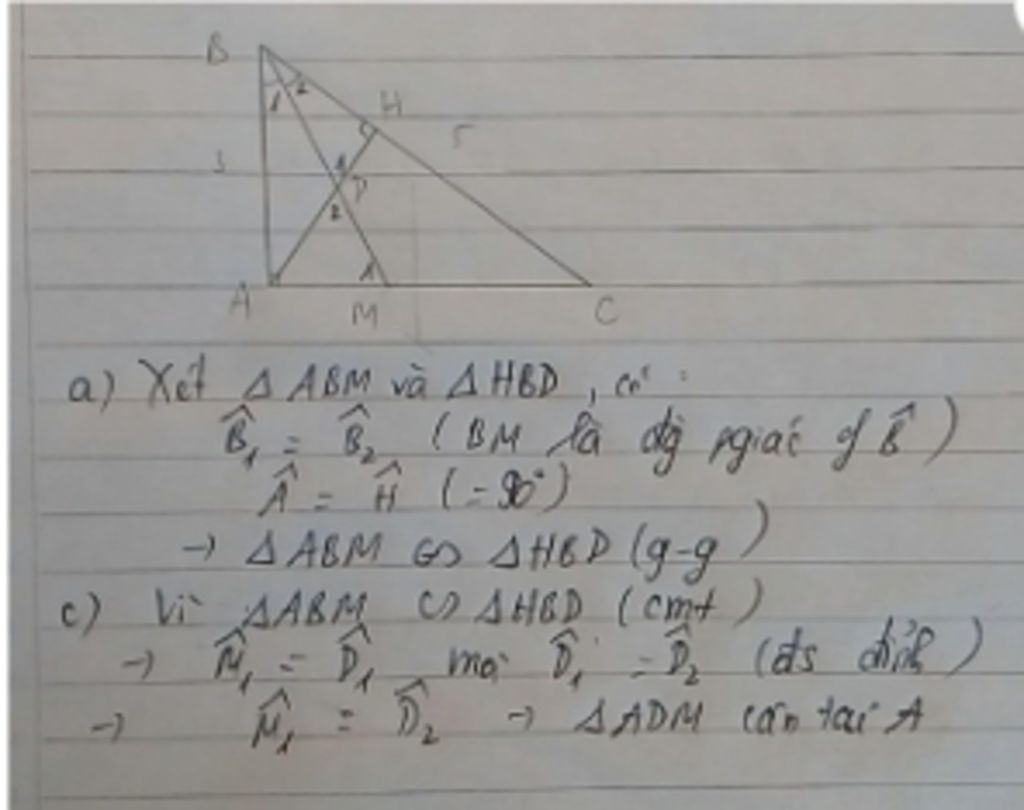 B
1 2
H
5
1
D
2
1
A
M
C
a) Xét Δ ABM và Δ HBD, có:
B̂₁ = B̂₂ (BM là đg pgiác of B̂)
Â = Ĥ (=90°)
→ Δ ABM ∽ Δ HBD (g-g)
c) Vì ΔABM ∽ ΔHBD (cmt)
→ M̂₁ = D̂₁ mà D̂₁ = D̂₂ (đs đỉnh)
→ M̂₁ = D̂₂ → ΔADM cân tại A